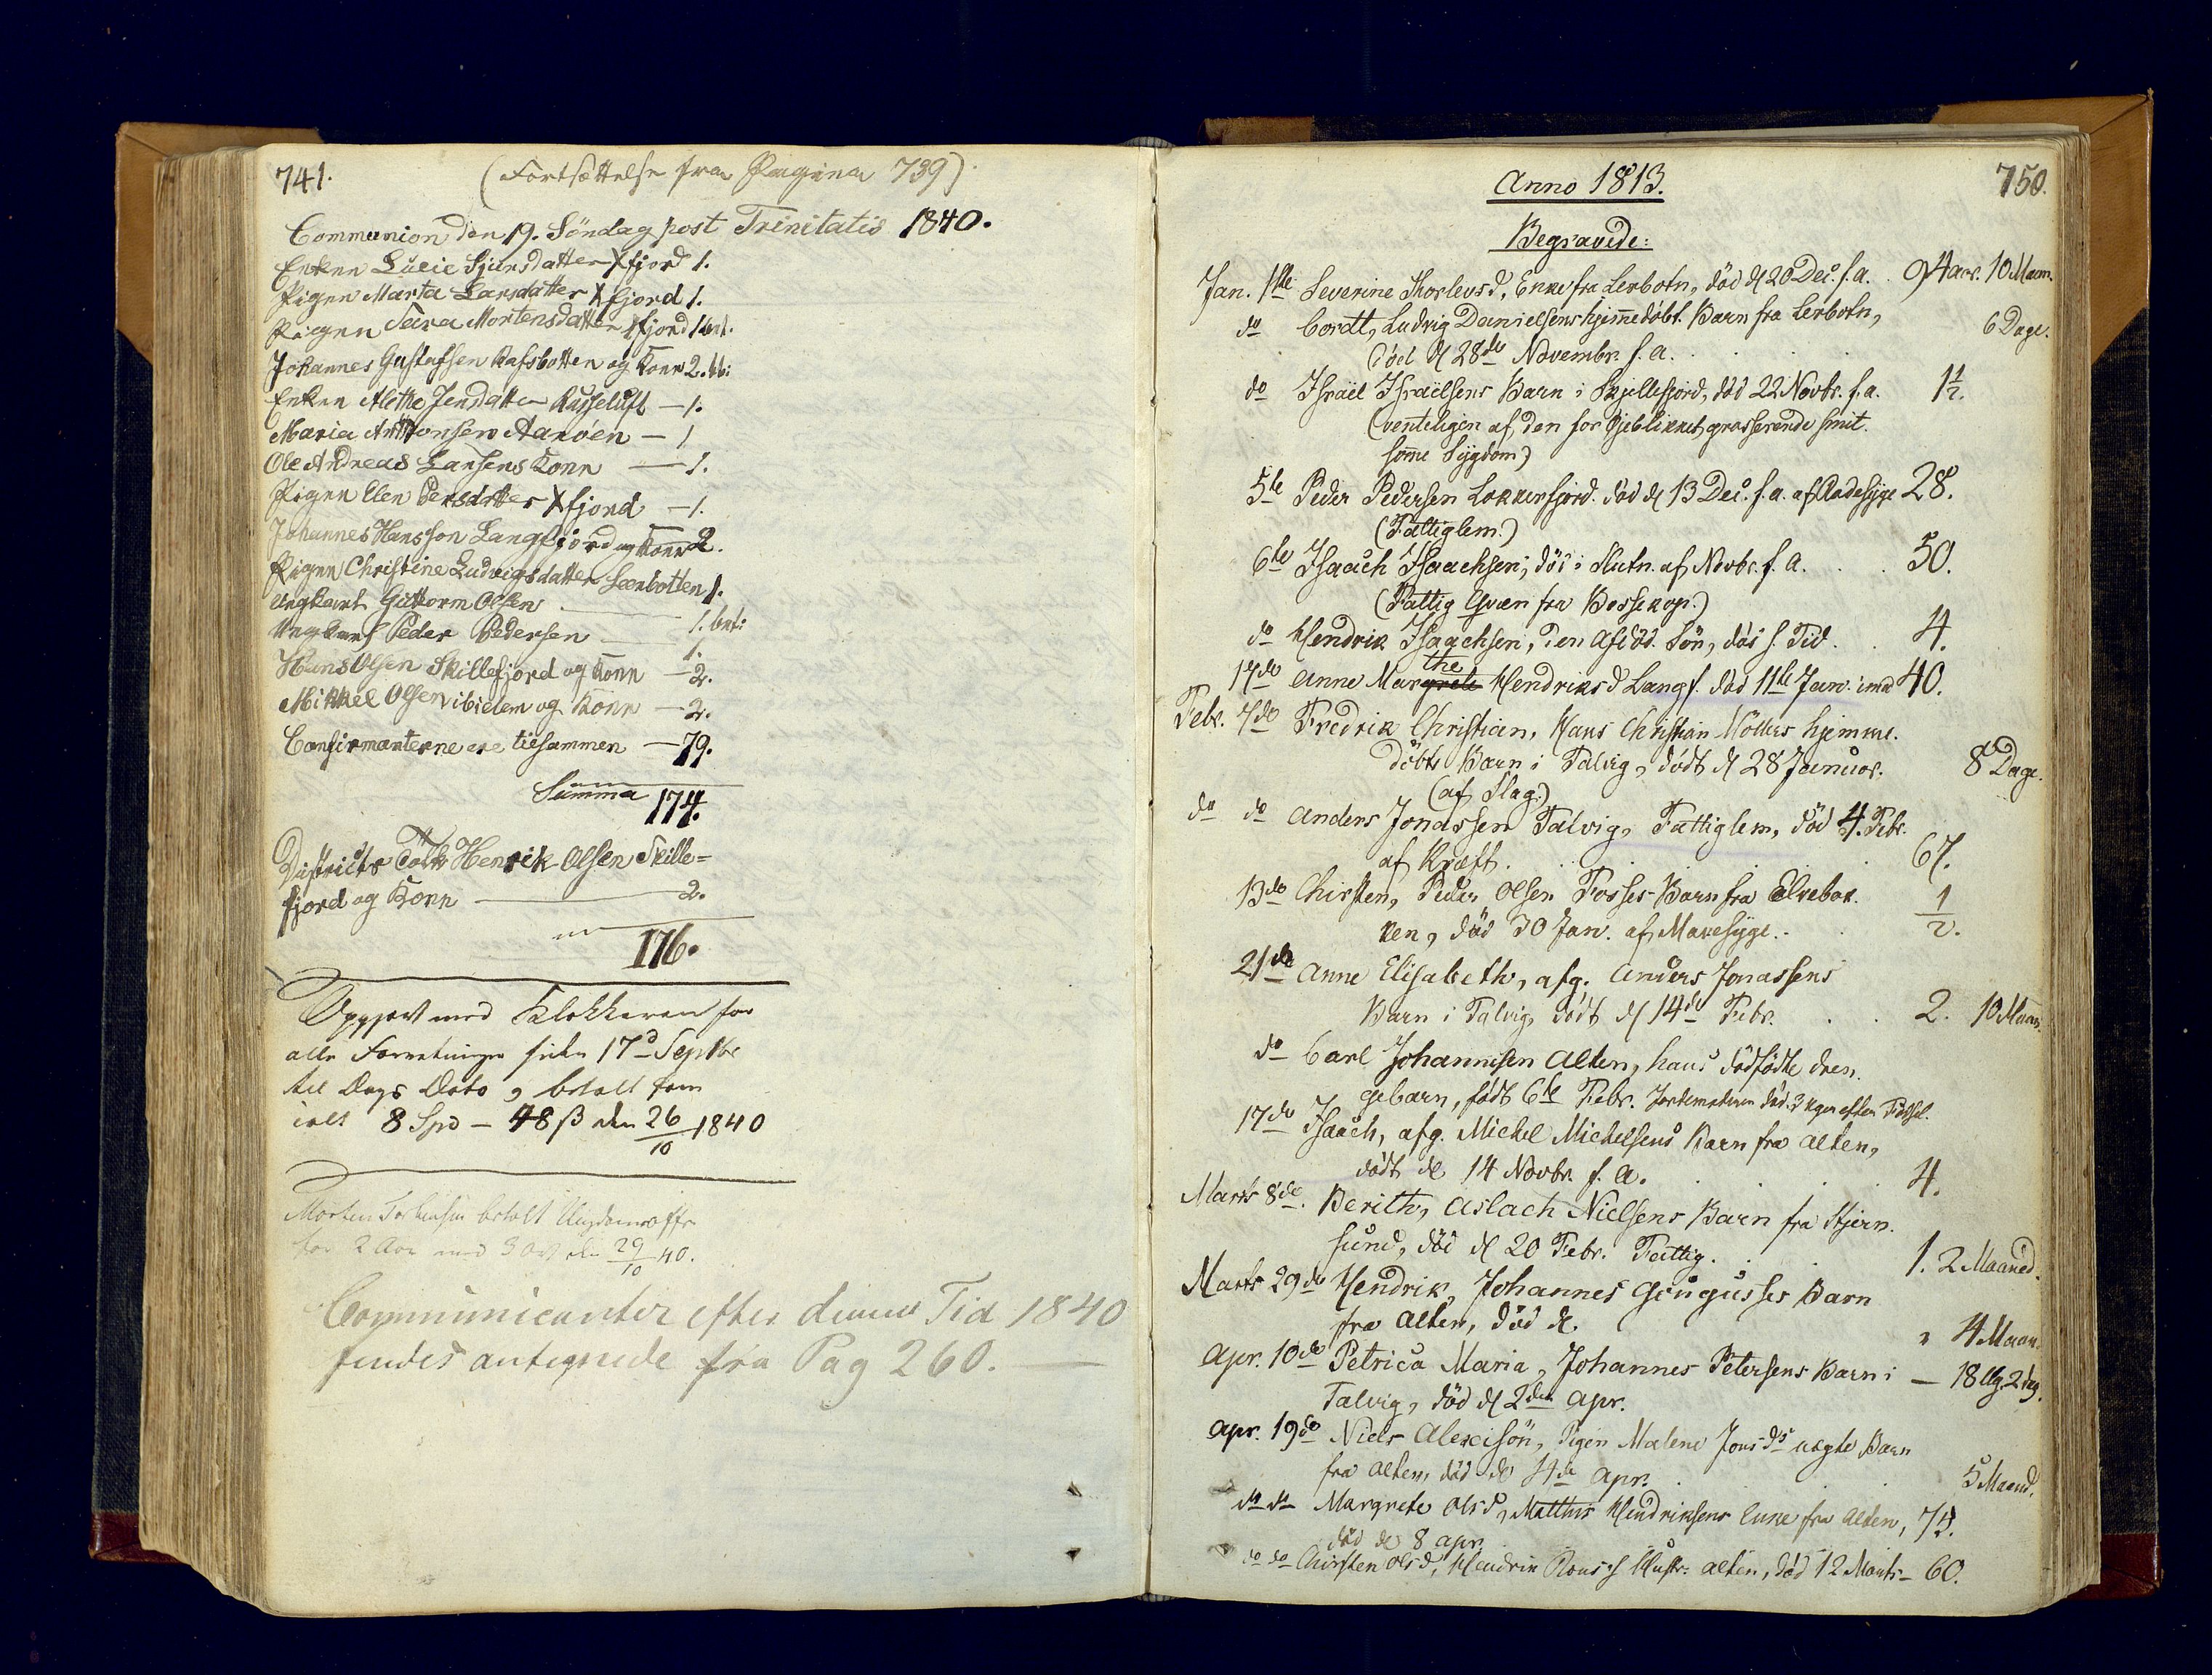 741.
(Fortsættelse fra Pagina 739)
Communion den 19. Söndag post Trinitatis 1840.
Enken Lucie Sjursdatter Xfjord 1.
Pigen Marta Larsdatter Xfjord 1.
Pigen Sara Mortensdatter Xfjord 1 bet.
Johannes Gustafsen Rafsbotten og Kone 2. bt:
Enken Alethe Jensdatter Russeluft — 1.
Maria Anthonsen Aaröen — 1
Ole Andreas Larsens Kone — 1.
Pigen Elen Persdatter Xfjord — 1.
Johannes Hansson Langfjord og Kone 2.
Pigen Christine Ludvigsdatter Leerbotten 1.
Ungkarl Guttorm Olsen — 1. bet:
Ungkarl Peder Pedersen — 1.
Hans Olsen Skillefjord og Kone — 2.
Mikkel Olsen ibidem og Kone — 2.
Confirmanterne ere tilsammen — 79.
Summa 174.
Districts Henrik Olsen Skille=
fjord og Kone — 2.
176.
Opgjort med Klokkeren for
alle Forretninger siden 17d Septbr
til Dags Dato, betalt ham
ialt 8 Spd — 48 ß den 26/10 1840
Morten betalt
for 2 Aar med 3 ort den 29/10 40.
Communicanter efter denne Tid 1840
findes antegnede fra Pag 260. —
Anno 1813.
750.
Begravede:
Jan. 1ste Severine Thorlevsd, Enke fra Lerbotn, död d 20 Dec. f. a. 94 aar. 10 Maan.
do Cordt, Ludvig Danielsens hjemedöbt Barn fra Lerbotn, 6 Dage.
död d 28de Novembr. f. a.
do Israël Israëlsens Barn i Skjillefjord, död 22 Novbr. f. a. 1½.
(venteligen af den for Öjeblikket grasserende smit.
some Sygdom)
5te Peder Pedersen Lokkersfjord. död d 13 Dec. f. a. af Radesyge 28.
(Fattiglem.)
6te Isaach Isaachsen, död i Slutn. af Novbr. f. a. 50.
(Fattig Qvæn fra Bossekop.)
do Hendrik Isaachsen, den Afdöd. Sön, död s. Tid. 4.
17de Anne Marthe Hendriksd Langf. död 11te Jan. 40.
Febr. 7de Fredrik Christian, Hans Christian Möllers hjemme.
döbte Barn i Talvig, dödt d 28 Januar. 8 Dage.
(af Slag.)
do do Anders Jonassen Talvig, Fattiglem, död 4. Febr.
af Kræft. 67.
13de Chirsten, Peder Olsen Fosses Barn fra Elvebak.
ken, död 30 Jan. af Mavesyge. 1/2.
21de Anne Elisabeth, afg. Anders Jonassens
Barn i Talvig, dödt d 14de Febr. 2. 10 Maan.
do Carl Johannesen Alten, hans dödfödte dren.
gebarn, födt 6te Febr. Jordemoderen död 3 Uger efter Födsel.
17de Isaach, afg. Michel Michelsens Barn fra Alten,
dödt d 14 Novbr. f. a. 4.
Marts 8de. Berith, Aslach Nielsens Barn fra Stjern.
sund, död d 20 Febr. Fattig. 1. 2 Maaned.
Marts 29de Hendrik, Johannes Barn
fra Alten, död d. 4 Maan.
Apr. 10de Petrica Maria, Johannes Petersens Barn i — 18 Ug. 2 dag.
Talvig, död d 2den Apr.
Apr. 19de Niels Alexisön, Pigen Malene Jonsds uægte Barn
fra Alten, död d 4de Apr. 5 Maaned.
do do Margrete Olsd, Matthis Hendriksens Enke fra Alten, 74.
död d 8 Apr.
do do Chirsten Olsd, Hendrik Hustr: Alten, död 12 Marts — 60.